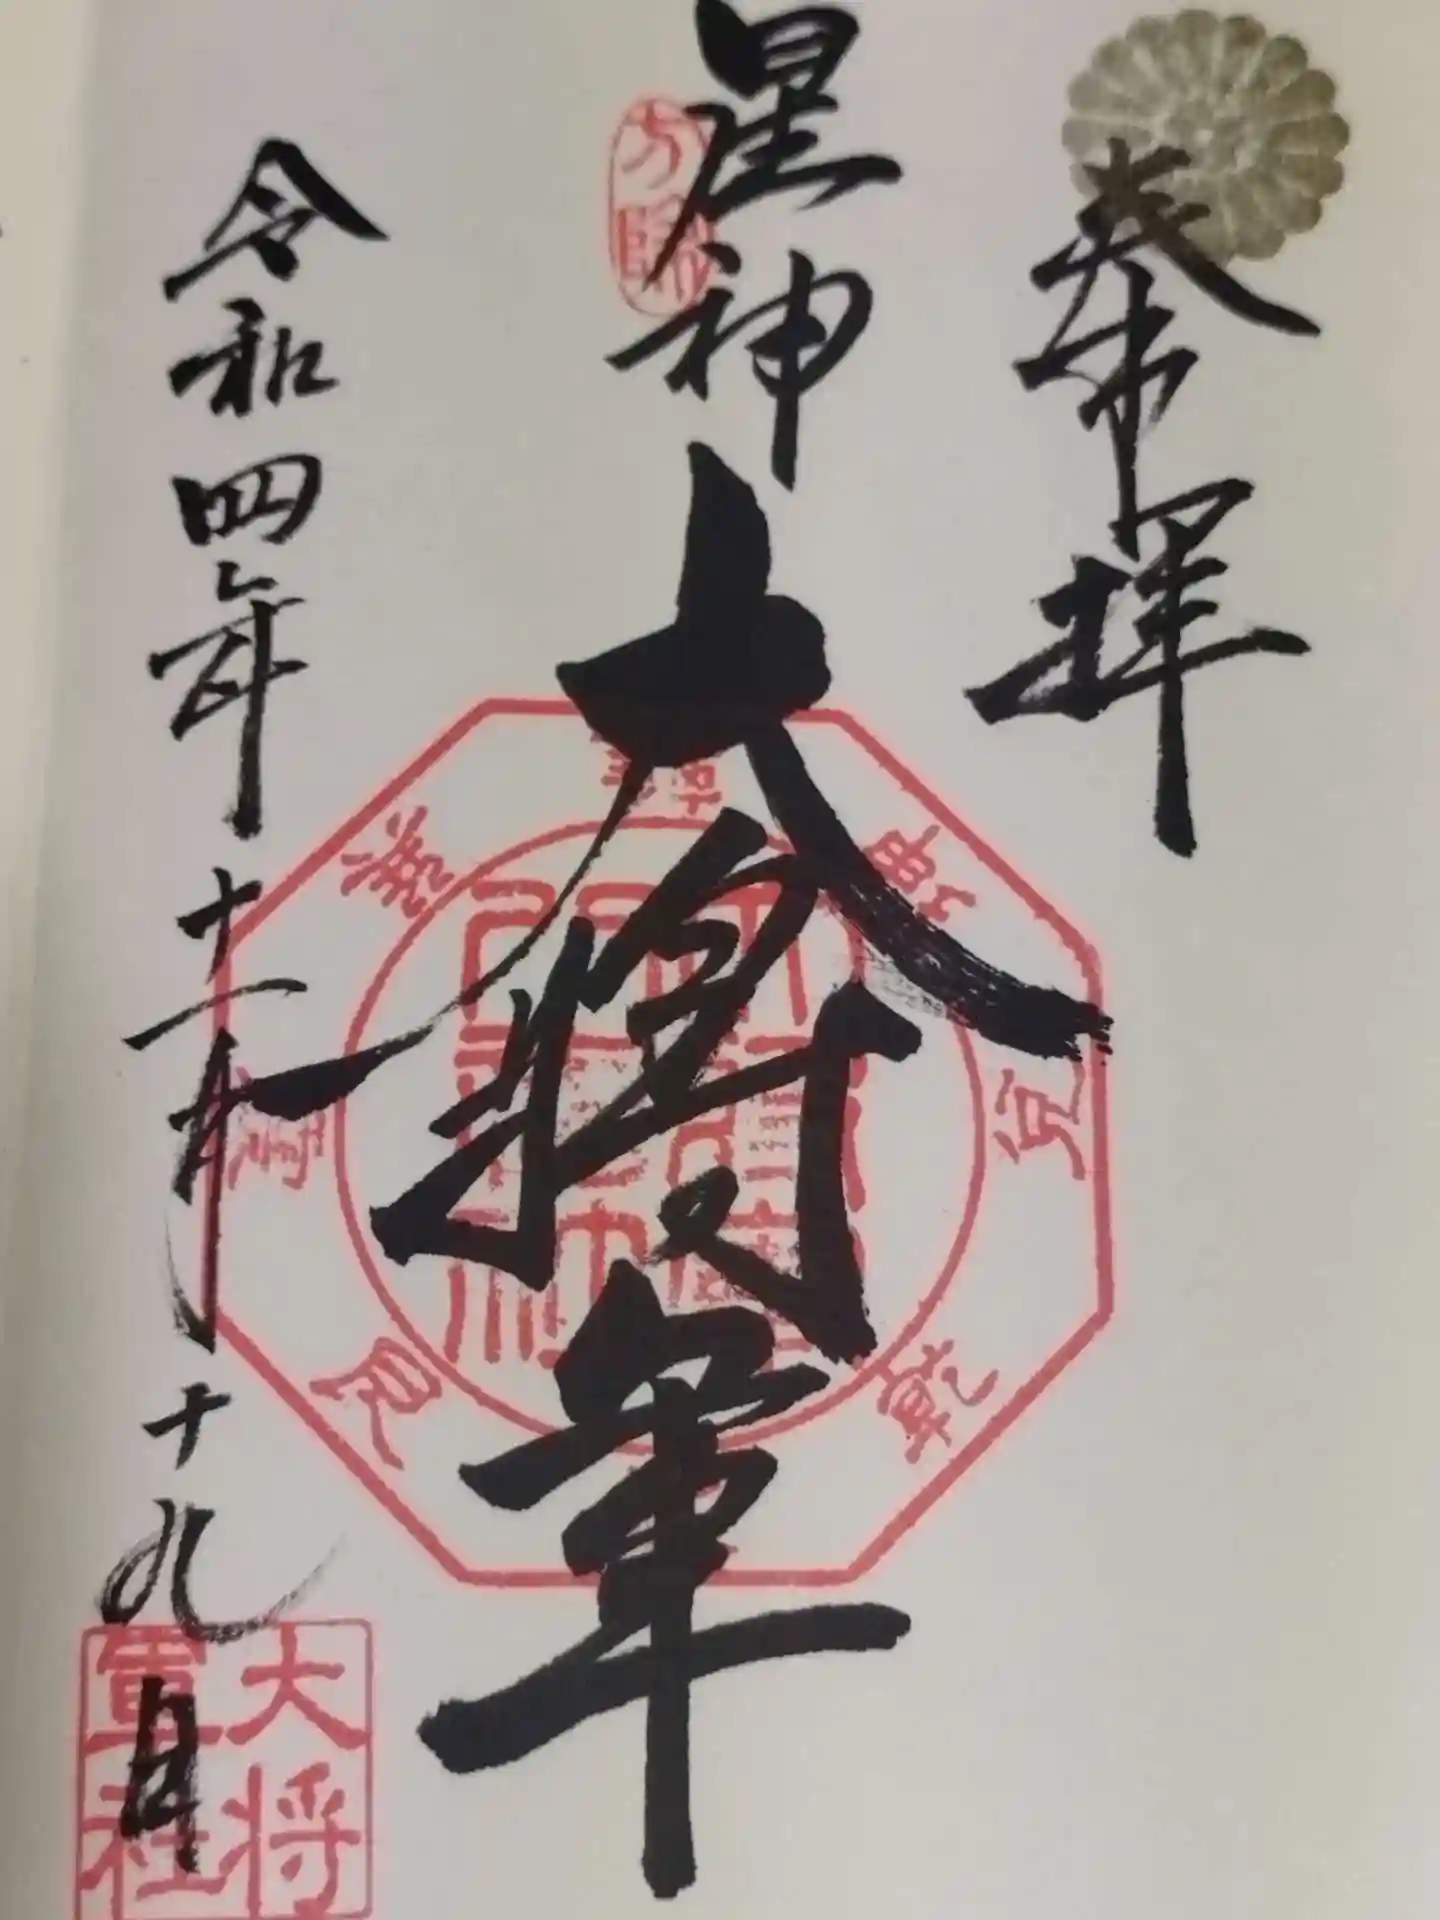 奉拝
星神
大将軍
令和四年十一月十九日
方除
大将
軍社
乾